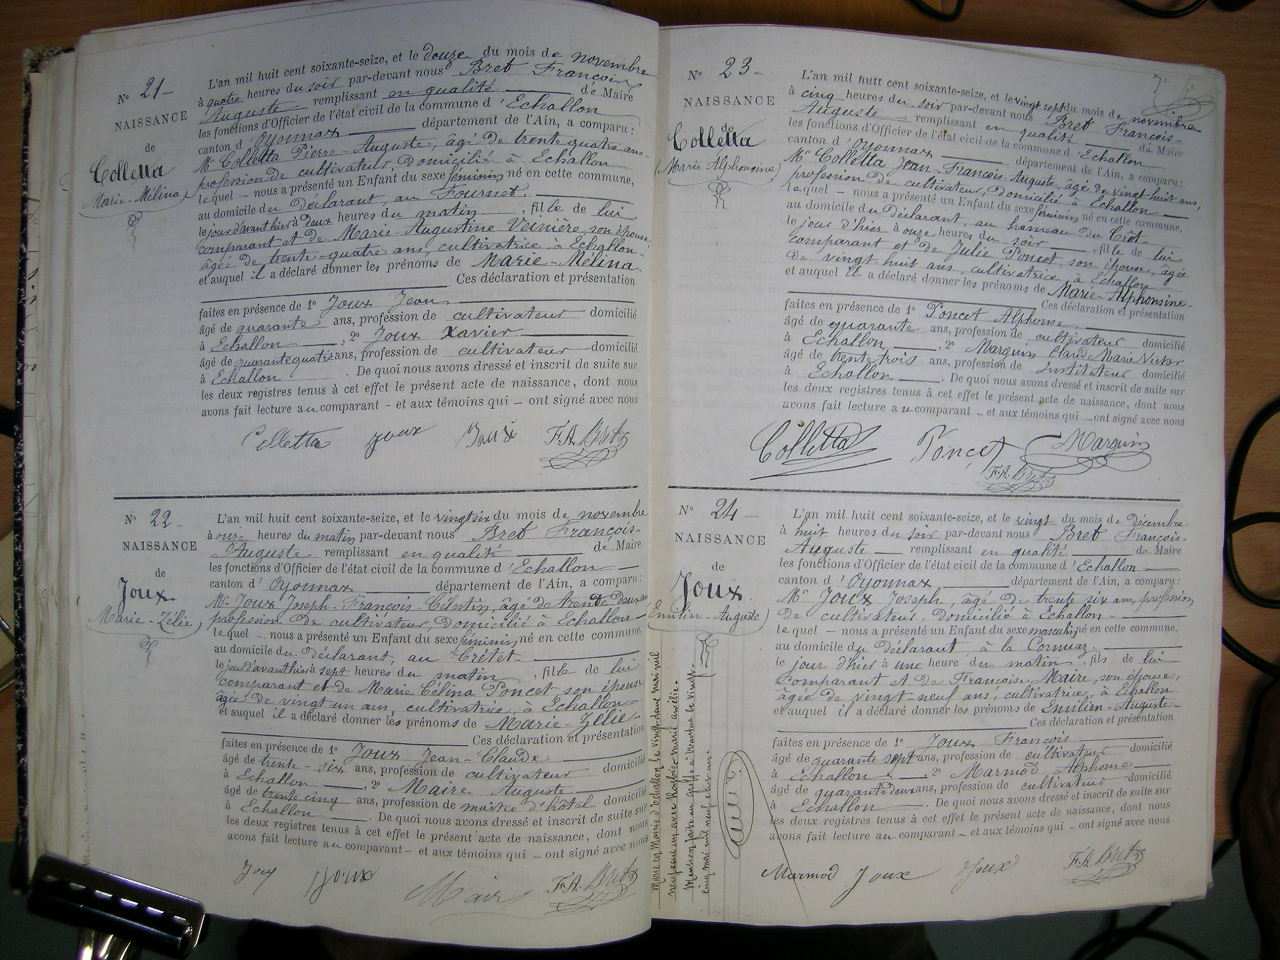 N° 21
NAISSANCE
de
Colletta
Marie-Mélina
L'an mil huit cent soixante-seize, et le douze du mois de novembre
à quatre heures du soir par-devant nous Bret François
Auguste remplissant en qualité de Maire
les fonctions d'Officier de l'état civil de la commune d'Echallon
canton d'Oyonnax département de l'Ain, a comparu:
Mr Colletta Pierre-Auguste, âgé de trente quatre ans
profession de cultivateur, Domicilié à Echallon
lequel - nous a présenté un Enfant du sexe féminin né en cette commune,
au domicile du Déclarant, au Fournet
le jour d'avant hier à deux heures du matin, fille de lui
comparant et de Marie Augustine son épouse,
âgée de trente-quatre ans, cultivatrice à Echallon
et auquel il a déclaré donner les prénoms de Marie-Mélina
Ces déclaration et présentation
faites en présence de 1° Joux Jean
âgé de quarante ans, profession de cultivateur domicilié
à Echallon, 2° Joux Xavier
âgé de quarante quatre ans, profession de cultivateur domicilié
à Echallon. De quoi nous avons dressé et inscrit de suite sur
les deux registres tenus à cet effet le présent acte de naissance, dont nous
avons fait lecture au comparant - et aux témoins qui - ont signé avec nous
Colletta Joux Joux F.A. Bret
N° 22
NAISSANCE
de
Joux
Marie-Zélie
L'an mil huit cent soixante-seize, et le vingt six du mois de novembre
à heures du matin par-devant nous Bret François-
Auguste remplissant en qualité de Maire
les fonctions d'Officier de l'état civil de la commune d'Echallon
canton d'Oyonnax département de l'Ain, a comparu:
Mr Joux Joseph-François Célestin, âgé de trente deux ans
profession de cultivateur, Domicilié à Echallon
lequel - nous a présenté un Enfant du sexe féminin né en cette commune
au domicile du Déclarant, au Crêtet
le jour d'avant hier à sept heures du matin, fille de lui
comparant et de Marie Célina Poncet son épouse
âgée de vingt un ans, cultivatrice, à Echallon
et auquel il a déclaré donner les prénoms de Marie-Zélie
Ces déclaration et présentation
faites en présence de 1° Joux Jean-Claude
âgé de trente-six ans, profession de cultivateur domicilié
à Echallon, 2° Maire Auguste
âgé de trente cinq ans, profession de maître d'hôtel domicilié
à Echallon. De quoi nous avons dressé et inscrit de suite sur
les deux registres tenus à cet effet le présent acte de naissance, dont nous
avons fait lecture au comparant - et aux témoins qui - ont signé avec nous
Joux Joux Maire F.A. Bret
N° 23
NAISSANCE
de
Colletta
Marie Alphonsine
L'an mil huit cent soixante-seize, et le vingt sept du mois de novembre
à cinq heures du soir par-devant nous Bret François-
Auguste remplissant en qualité de Maire
les fonctions d'Officier de l'état civil de la commune d'Echallon
canton d'Oyonnax département de l'Ain, a comparu:
Mr Colletta Jean-François-Auguste, âgé de vingt huit ans,
profession de cultivateur, Domicilié à Echallon
lequel - nous a présenté un Enfant du sexe féminin né en cette commune,
au domicile du Déclarant au hameau du Crêt
le jour d'hier à onze heures du soir, fille de lui
comparant et de Julie Poncet son épouse, âgée
de vingt huit ans, cultivatrice à Echallon
et auquel il a déclaré donner les prénoms de Marie-Alphonsine
Ces déclaration et présentation
faites en présence de 1° Poncet Alphonse
âgé de quarante ans, profession de cultivateur domicilié
à Echallon, 2° Marquis Claude Marie Victor
âgé de trente trois ans, profession de Instituteur domicilié
à Echallon. De quoi nous avons dressé et inscrit de suite sur
les deux registres tenus à cet effet le présent acte de naissance, dont nous
avons fait lecture au comparant - et aux témoins qui - ont signé avec nous
Colletta Poncet Marquis
F.A. Bret
N° 24
NAISSANCE
de
Joux
Emilien-Auguste
L'an mil huit cent soixante-seize, et le vingt du mois de Décembre
à huit heures du soir par-devant nous Bret François-
Auguste remplissant en qualité de Maire
les fonctions d'Officier de l'état civil de la commune d'Echallon
canton d'Oyonnax département de l'Ain, a comparu:
Mr Joux Joseph, âgé de trente six ans, profession
de cultivateur, Domicilié à Echallon
lequel - nous a présenté un Enfant du sexe masculin né en cette commune,
au domicile du Déclarant, à la Cornuaz
le jour d'hier à une heure du matin, fils de lui
Comparant et de Françoise Maire, son épouse,
âgée de vingt neuf ans, cultivatrice, à Echallon
et auquel il a déclaré donner les prénoms de Emilien-Auguste
Ces déclaration et présentation
faites en présence de 1° Joux François
âgé de quarante sept ans, profession de cultivateur domicilié
à Echallon, 2° Marmod Alphonse
âgé de quarante deux ans, profession de cultivateur domicilié
à Echallon. De quoi nous avons dressé et inscrit de suite sur
les deux registres tenus à cet effet le présent acte de naissance, dont nous
avons fait lecture au comparant - et aux témoins qui - ont signé avec nous
Marmod Joux Joux F.A. Bret
Marié en Mairie d'Echallon le vingt deux mai mil
neuf cent un avec
Mention faite au greffe à Nantua le
mai mil neuf cent un